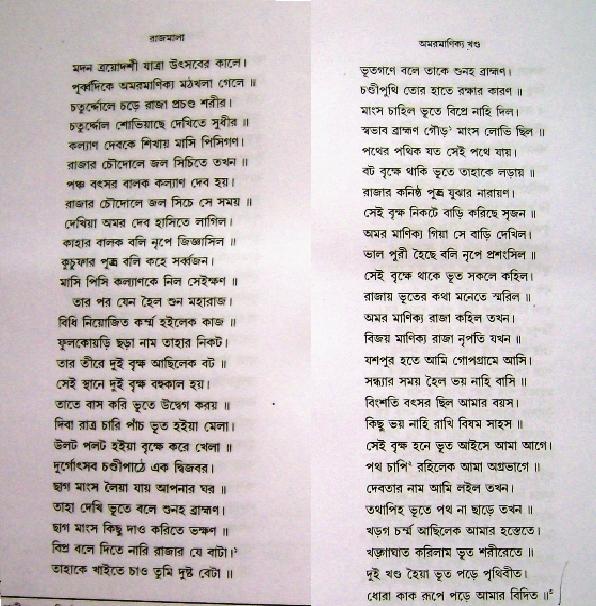 রাজমালা
মদন ত্রয়োদশী যাত্রা উৎসবের কালে।
পূর্ব্বদিকে অমরমাণিক্য মঠখলা গেলে ॥
চতুর্দ্দোলে চড়ে রাজা প্রচণ্ড শরীর।
চতুর্দ্দোল শোভিয়াছে দেখিতে সুধীর ॥
কল্যাণ দেবকে শিখায় মাসি পিসিগণ।
রাজার চৌদোলে জল সিচিতে তখন ॥
পঞ্চ বৎসর বালক কল্যাণ দেব হয়।
রাজার চৌদোলে জল সিচে সে সময় ॥
দেখিয়া অমর দেব হাসিতে লাগিল।
কাহার বালক বলি নৃপে জিজ্ঞাসিল ॥
কুচুফার পুত্র বলি কহে সর্ব্বজন।
মাসি পিসি কল্যাণকে নিল সেইক্ষণ ॥
তার পর যেন হৈল শুন মহারাজ।
বিধি নিয়োজিত কর্ম্ম হইলেক কাজ ॥
ফুলকোয়ড়ি ছড়া নাম তাহার নিকট।
তার তীরে দুই বৃক্ষ আছিলেক বট ॥
সেই স্থানে দুই বৃক্ষ বহুকাল হয়।
তাতে বাস করি ভূতে উদ্বেগ করয় ॥
দিবা রাত্র চারি পাঁচ ভূত হইয়া মেলা।
উলট পলট হইয়া বৃক্ষে করে খেলা ॥
দুর্গোৎসব চণ্ডীপাঠে এক দ্বিজবর।
ছাগ মাংস লৈয়া যায় আপনার ঘর ॥
তাহা দেখি ভূতে বলে শুনহ ব্রাহ্মণ।
ছাগ মাংস কিছু দাও করিতে ভক্ষণ ॥
বিপ্র বলে দিতে নারি রাজার যে বাটা।১
তাহাকে খাইতে চাও তুমি দুষ্ট বেটা ॥
অমরমাণিক্য খণ্ড
ভূতগণে বলে তাকে শুনহ ব্রাহ্মণ।
চণ্ডীপুথি তোর হাতে রক্ষার কারণ ॥
মাংস চাহিল ভূতে বিপ্রে নাহি দিল।
স্বভাব ব্রাহ্মণ গৌড়১ মাংস লোভি ছিল ॥
পথের পথিক যত সেই পথে যায়।
বট বৃক্ষে থাকি ভূতে তাহাকে লড়ায় ॥
রাজার কনিষ্ঠ পুত্র যুঝার নারায়ণ।
সেই বৃক্ষ নিকটে বাড়ি করিছে সৃজন ॥
অমর মাণিক্য গিয়া সে বাড়ি দেখিল।
ভাল পুরী হৈছে বলি নৃপে প্রশংসিল ॥
সেই বৃক্ষে থাকে ভূত সকলে কহিল।
রাজায় ভূতের কথা মনেতে স্মরিল ॥
অমর মাণিক্য রাজা কহিল তখন।
বিজয় মাণিক্য রাজা নৃপতি যখন ॥
যশপুর হতে আমি গোপগ্রামে আসি।
সন্ধ্যার সময় হৈল ভয় নাহি বাসি ॥
বিংশতি বৎসর ছিল আমার বয়স।
কিছু ভয় নাহি রাখি বিষম সাহস ॥
সেই বৃক্ষ হনে ভূত আইসে আমা আগে।
পথ চাপি২ রহিলেক আমা অগ্রভাগে ॥
দেবতার নাম আমি লইল তখন।
তথাপিহ ভূতে পথ না ছাড়ে তখন ॥
খড়গ চর্ম্ম আছিলেক আমার হস্তেতে।
খড়্গাঘাত করিলাম ভূত শরীরেতে ॥
দুই খণ্ড হৈয়া ভূত পড়ে পৃথিবীত।
ধোরা কাক রূপে পড়ে আমার বিদিত ॥৩